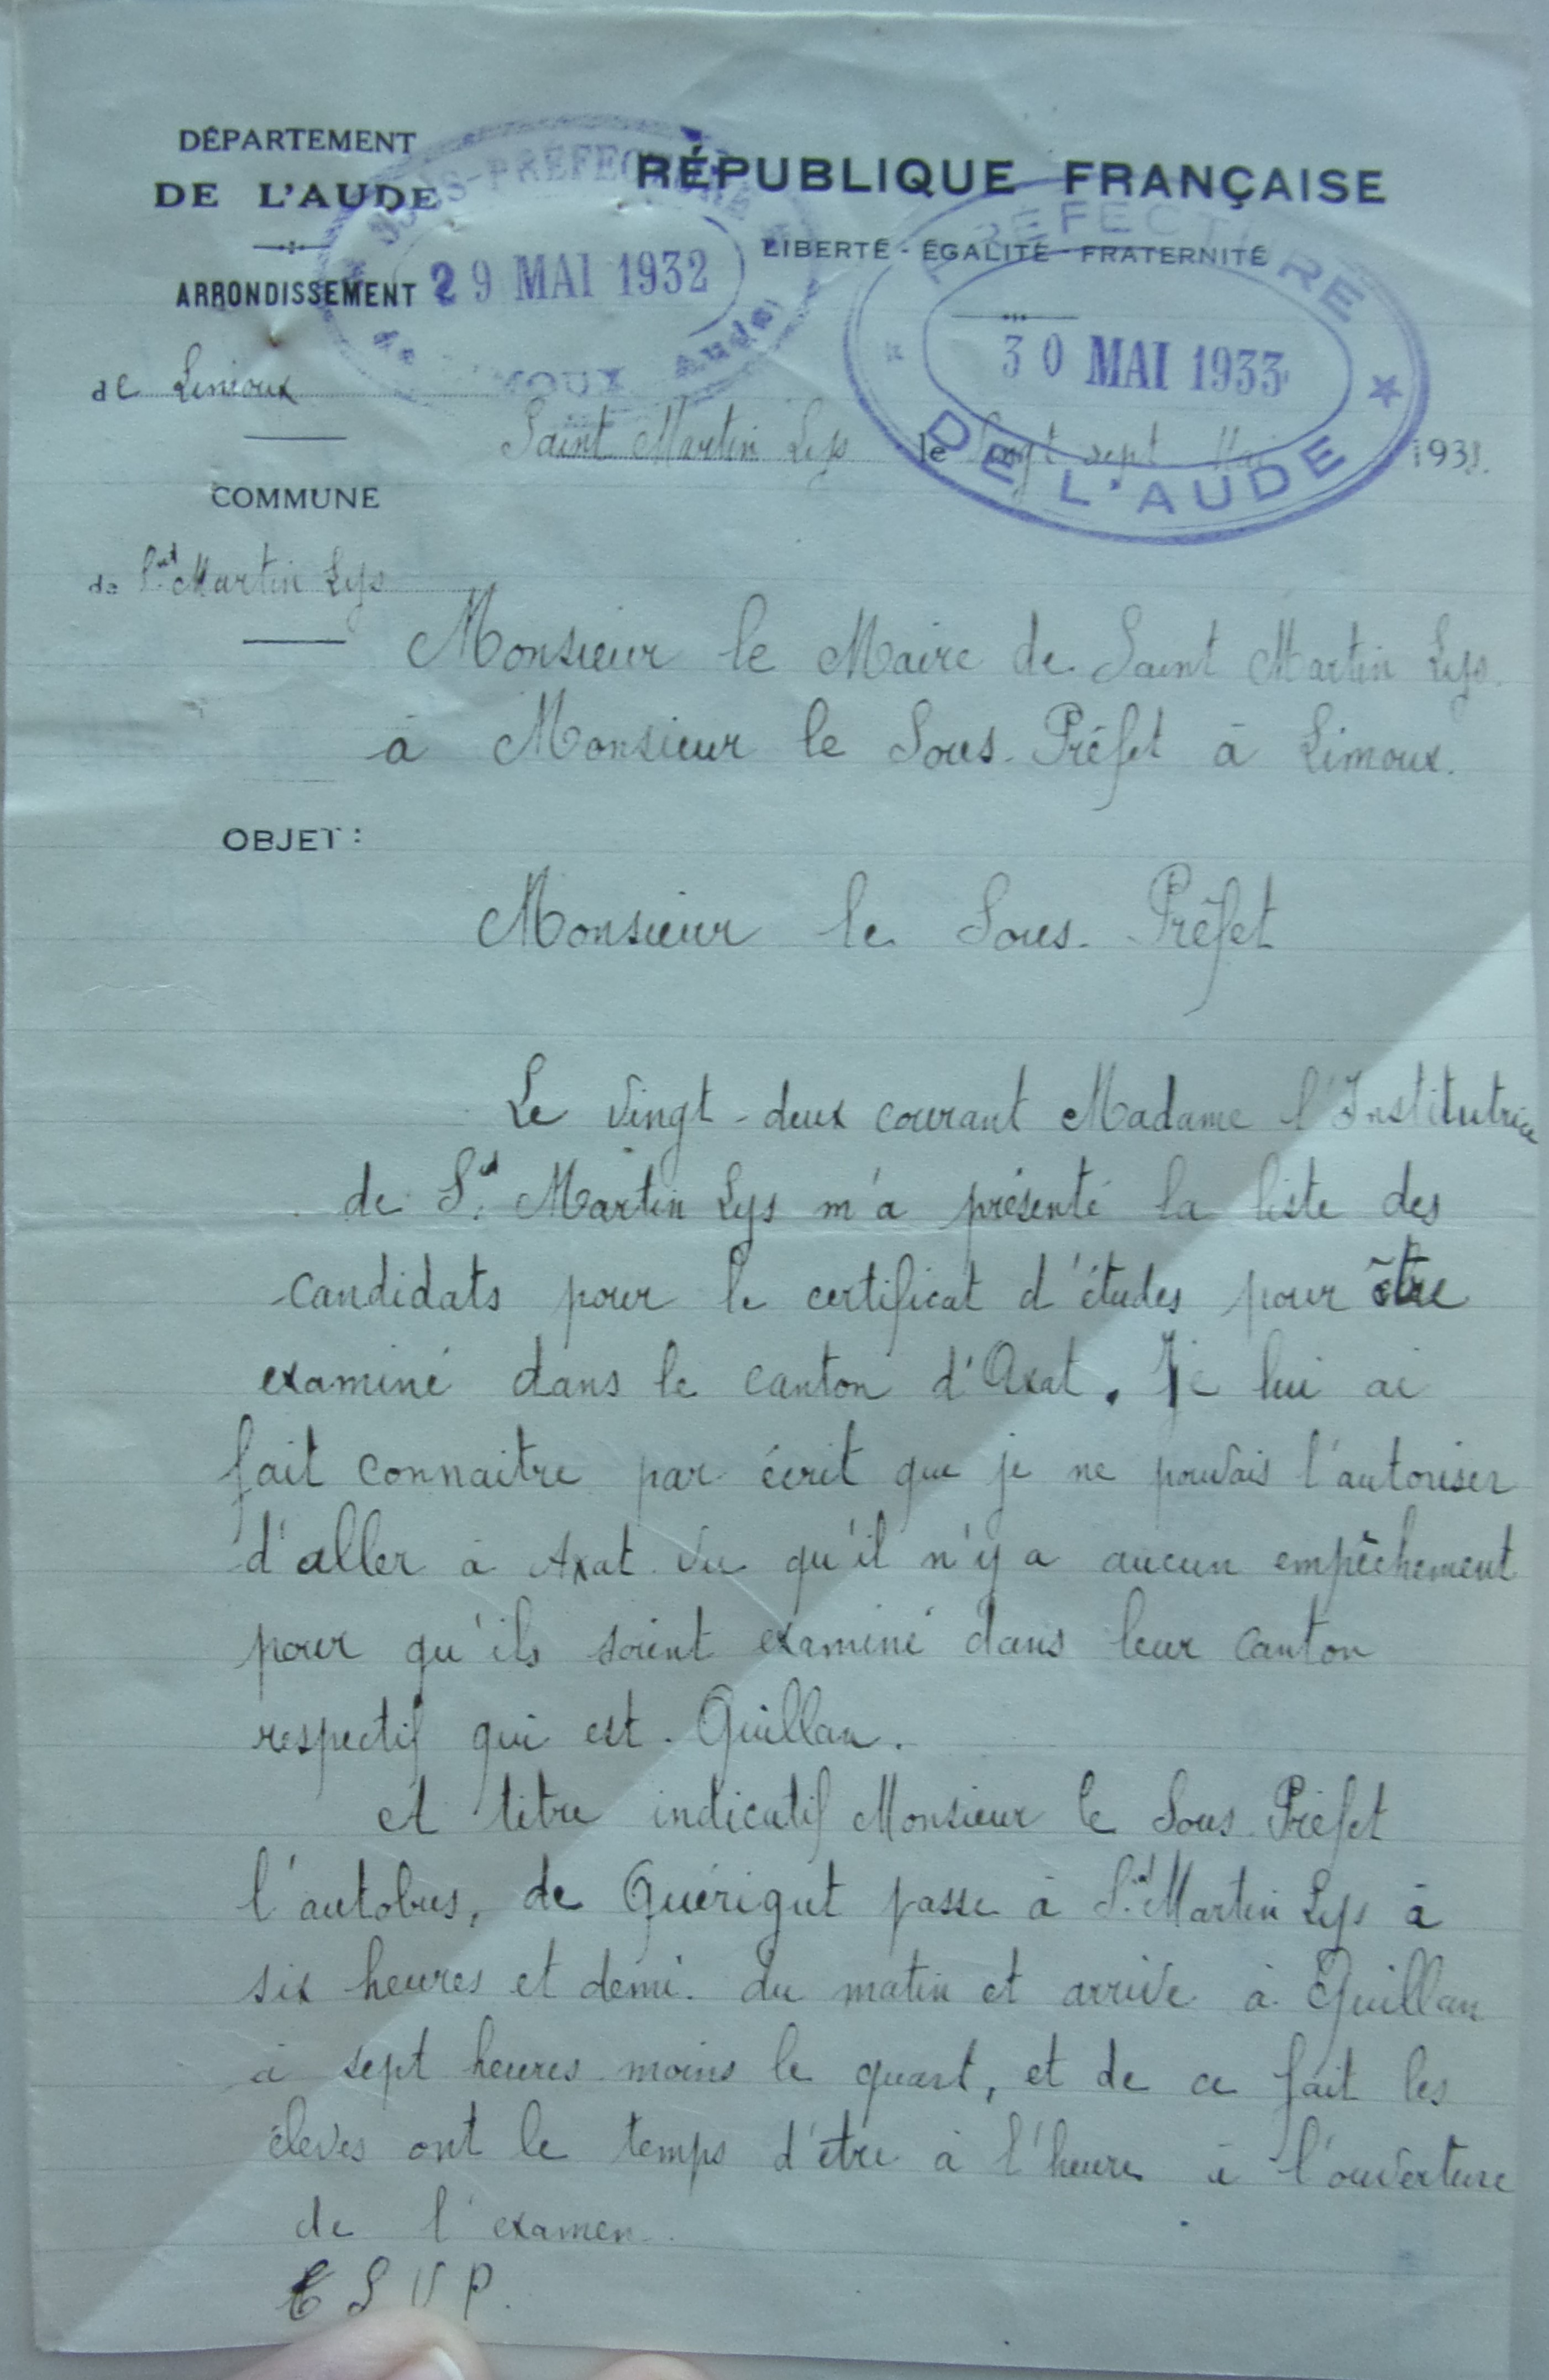 DÉPARTEMENT
DE L'AUDE
ARRONDISSEMENT
de Limoux
COMMUNE
de St Martin Lys
SOUS-PRÉFECTURE
29 MAI 1932
de LIMOUX (Aude)
RÉPUBLIQUE FRANÇAISE
LIBERTÉ - ÉGALITÉ - FRATERNITÉ
PRÉFECTURE
30 MAI 1933
DE L'AUDE
Saint Martin Lys le Vingt sept Mai 193
Monsieur le Maire de Saint Martin Lys.
à Monsieur le Sous-Préfet à Limoux.
OBJET :
Monsieur le Sous-Préfet
Le vingt-deux courant Madame l'Institutrice
de St Martin Lys m'a présenté la liste des
candidats pour le certificat d'études pour être
examiné dans le canton d'Axat. Je lui ai
fait connaitre par écrit que je ne pouvais l'autoriser
d'aller à Axat vu qu'il n'y a aucun empêchement
pour qu'ils soient examiné dans leur canton
respectif qui est Quillan.
A titre indicatif Monsieur le Sous Préfet
l'autobus, de Quérigut passe à St Martin Lys à
six heures et demi du matin et arrive à Quillan
à sept heures moins le quart, et de ce fait les
élèves ont le temps d'être à l'heure à l'ouverture
de l'examen.
T S V P.